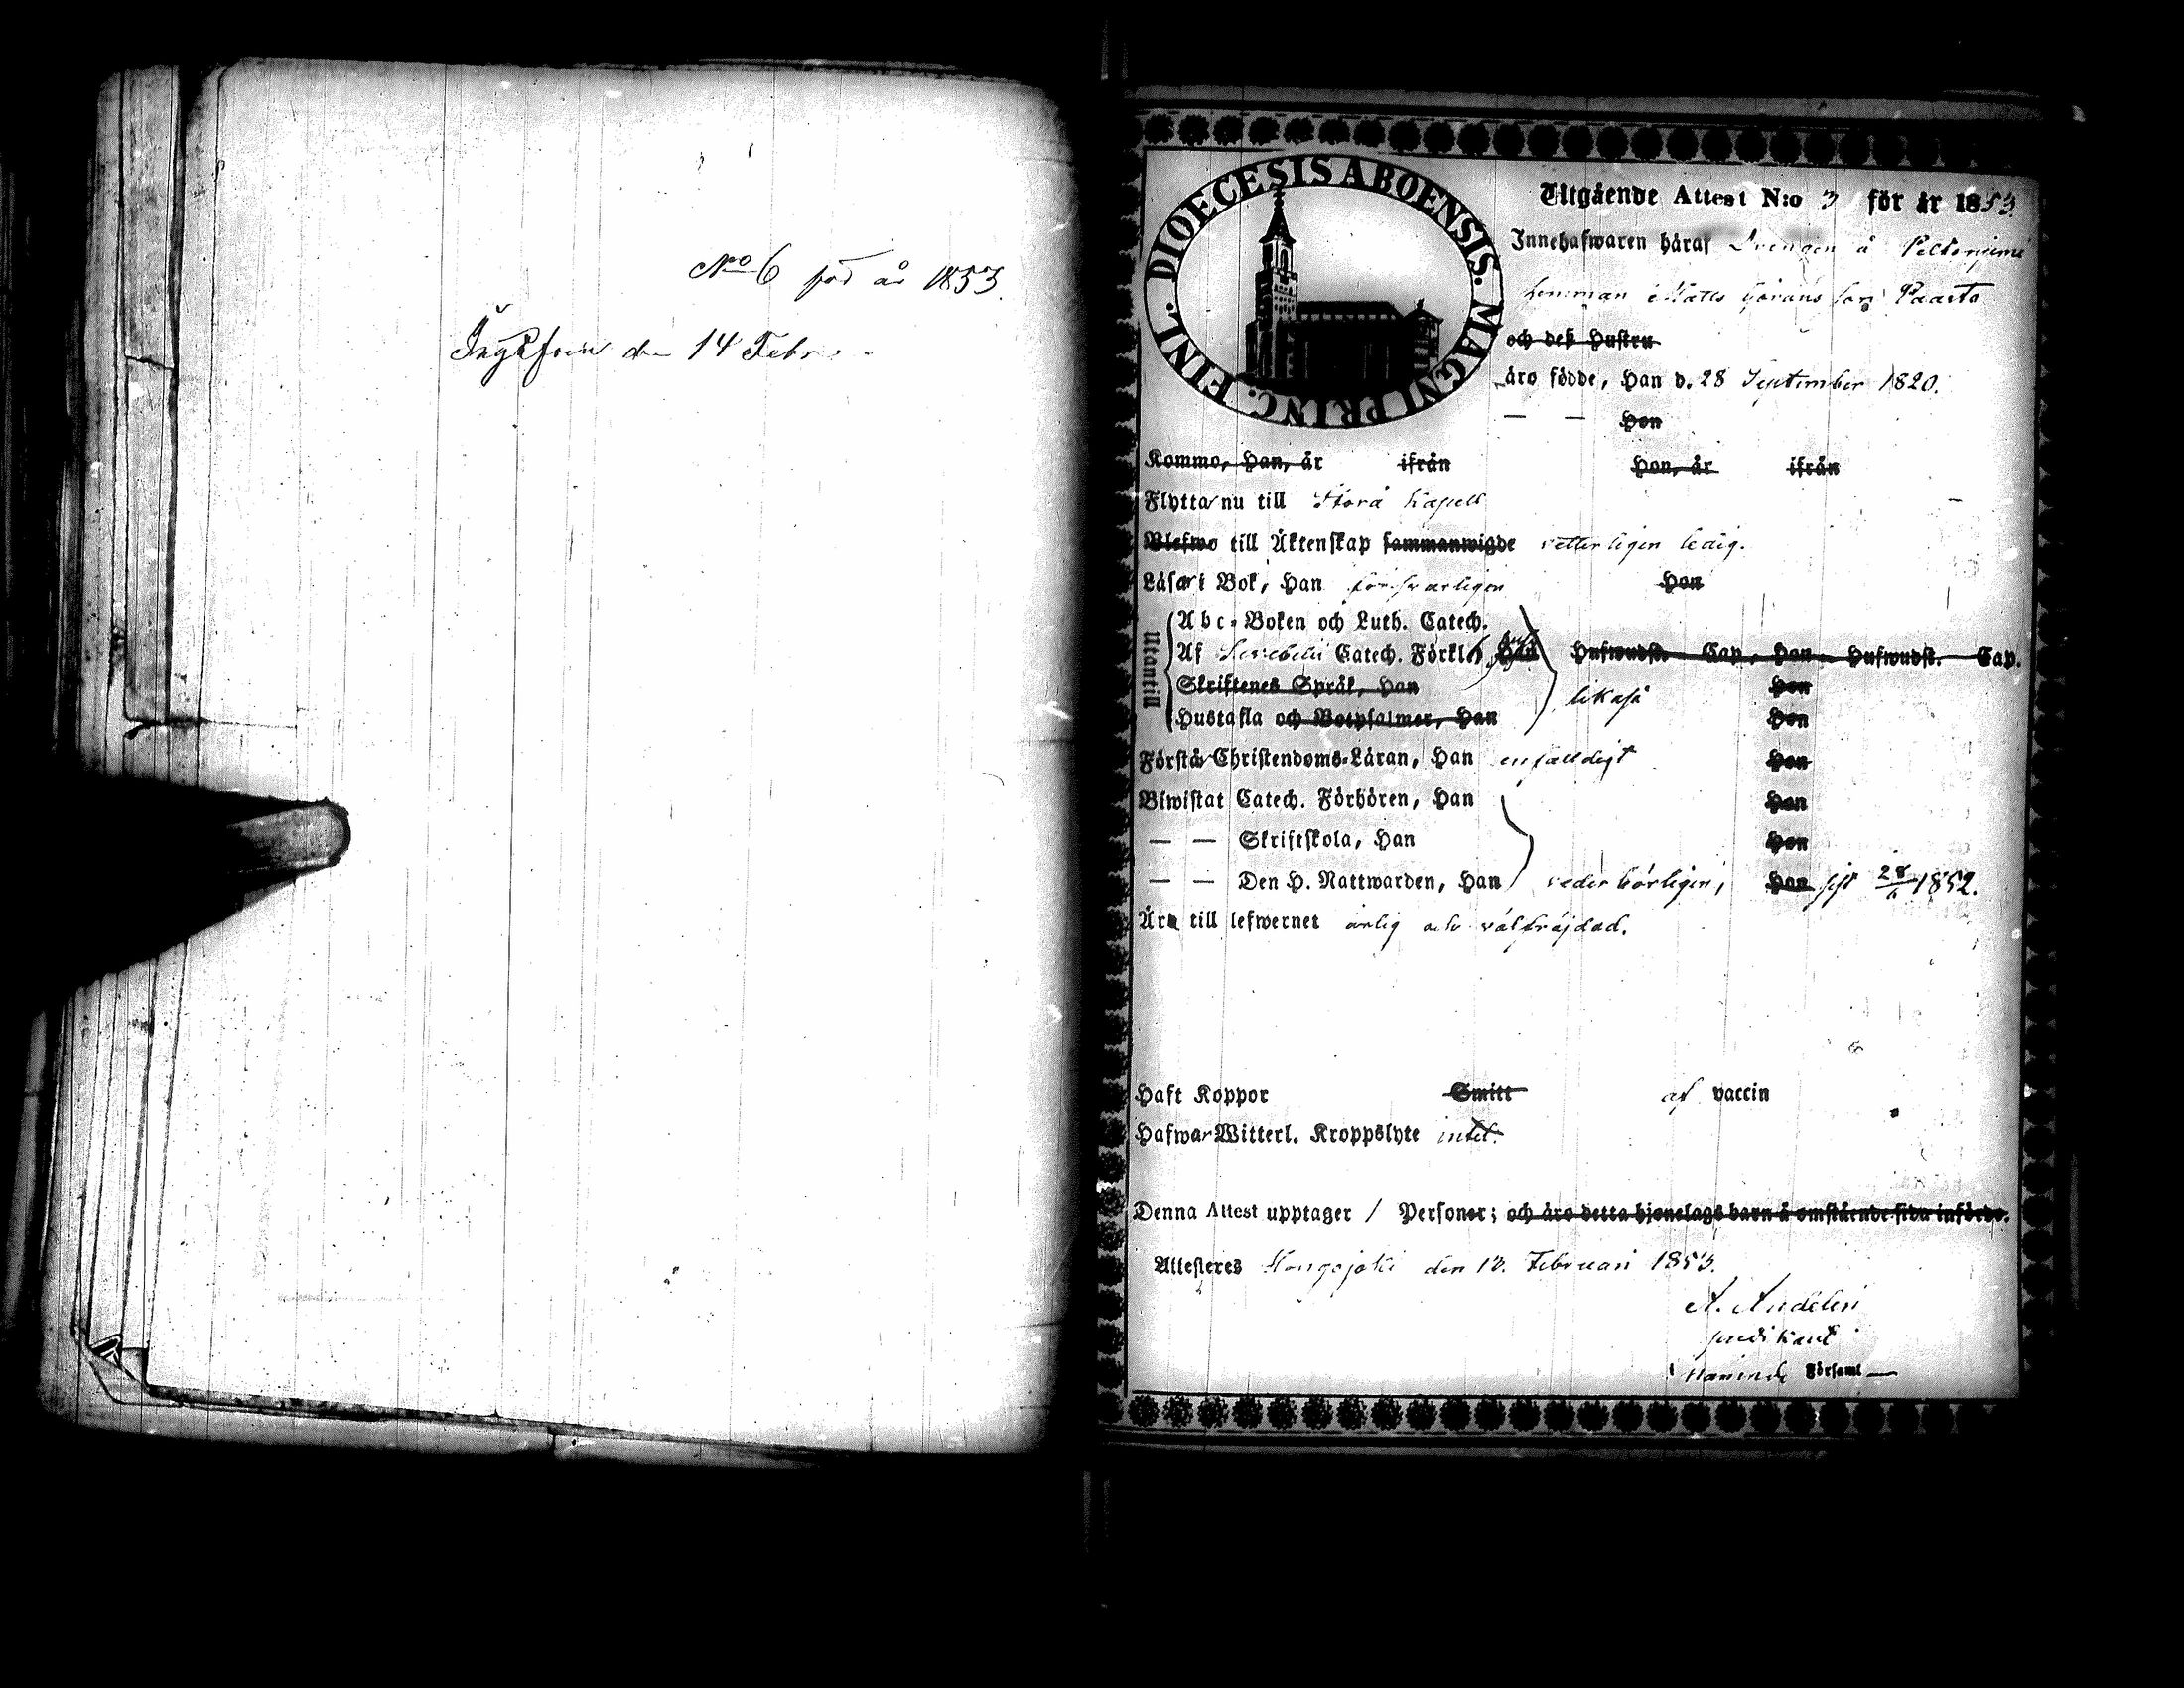 No 6 för år 1853.
den 14 Febr.
DIOECESIS ABOENSIS. MAGNI PRINC. FINL.
Utgående Attest N:o 3 för år 1853.
Innehafwaren häraf Drengen å Peltoniemi
hemman Matts Görans son Paasto
och deß Hustru
äro födde, Han d. 28 September 1820.
— — Hon
Kommo, Han, år ifrån Hon, år ifrån
Flytta nu till Storå Kapell
Blefwo till Äktenskap sammanwigde vetterligen ledig.
Läser i Bok, Han försvarligen Hon
Utantill
Abc-Boken och Luth. Catech.
Af Catech. Förkl. Han Hufwudst. Cap. Hon Hufwudst. Cap.
Skriftenes Språk, Han likaså Hon
Hustafla och Botpsalmer, Han Hon
Förstår Christendoms-Läran, Han enfaldigt Hon
Biwistat Catech. Förhören, Han Hon
— — Skriftskola, Han Hon
— — Den H. Nattwarden, Han vederbörligen, Hon sist 28/6 1852.
Äro till lefwernet ärlig och välfräjdad.
Haft Koppor Smitt af vaccin
Hafwa Witterl. Kroppslyte intet.
Denna Attest upptager / Personer; och äro detta hjonelags barn å omstående sida införde.
Attesteres Hongojoki den 12. Februari 1853.
A. Andelin
predikant
Församl —